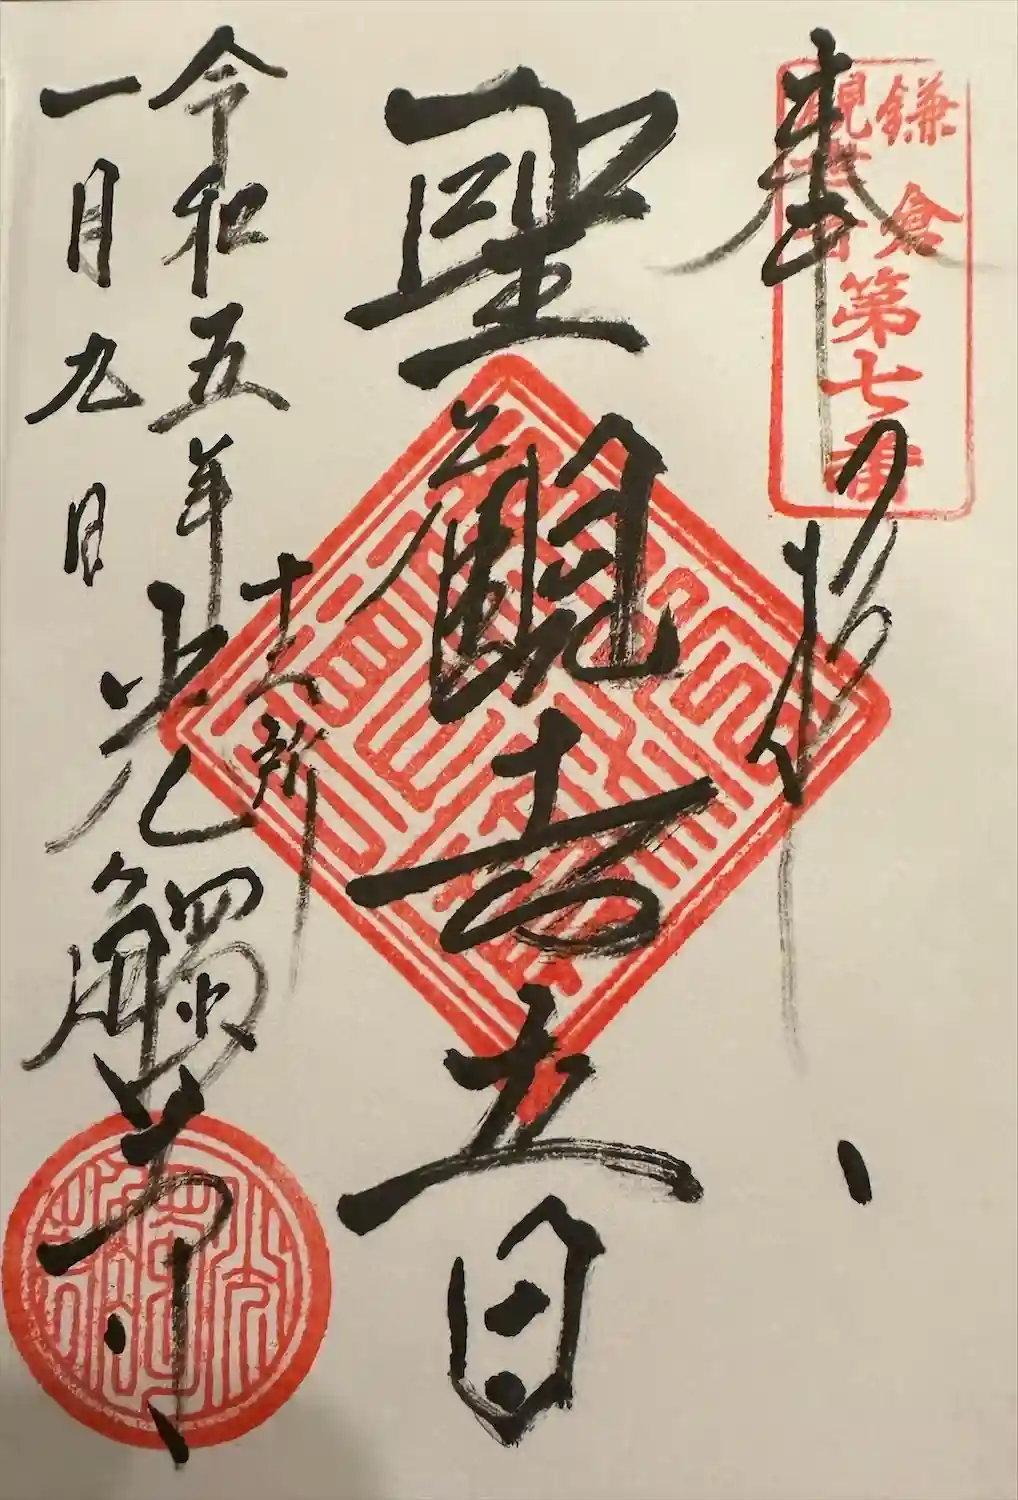 奉拝
鎌倉
観世音
第七番
聖観世音
十二所
光觸寺
令和五年
一月九日